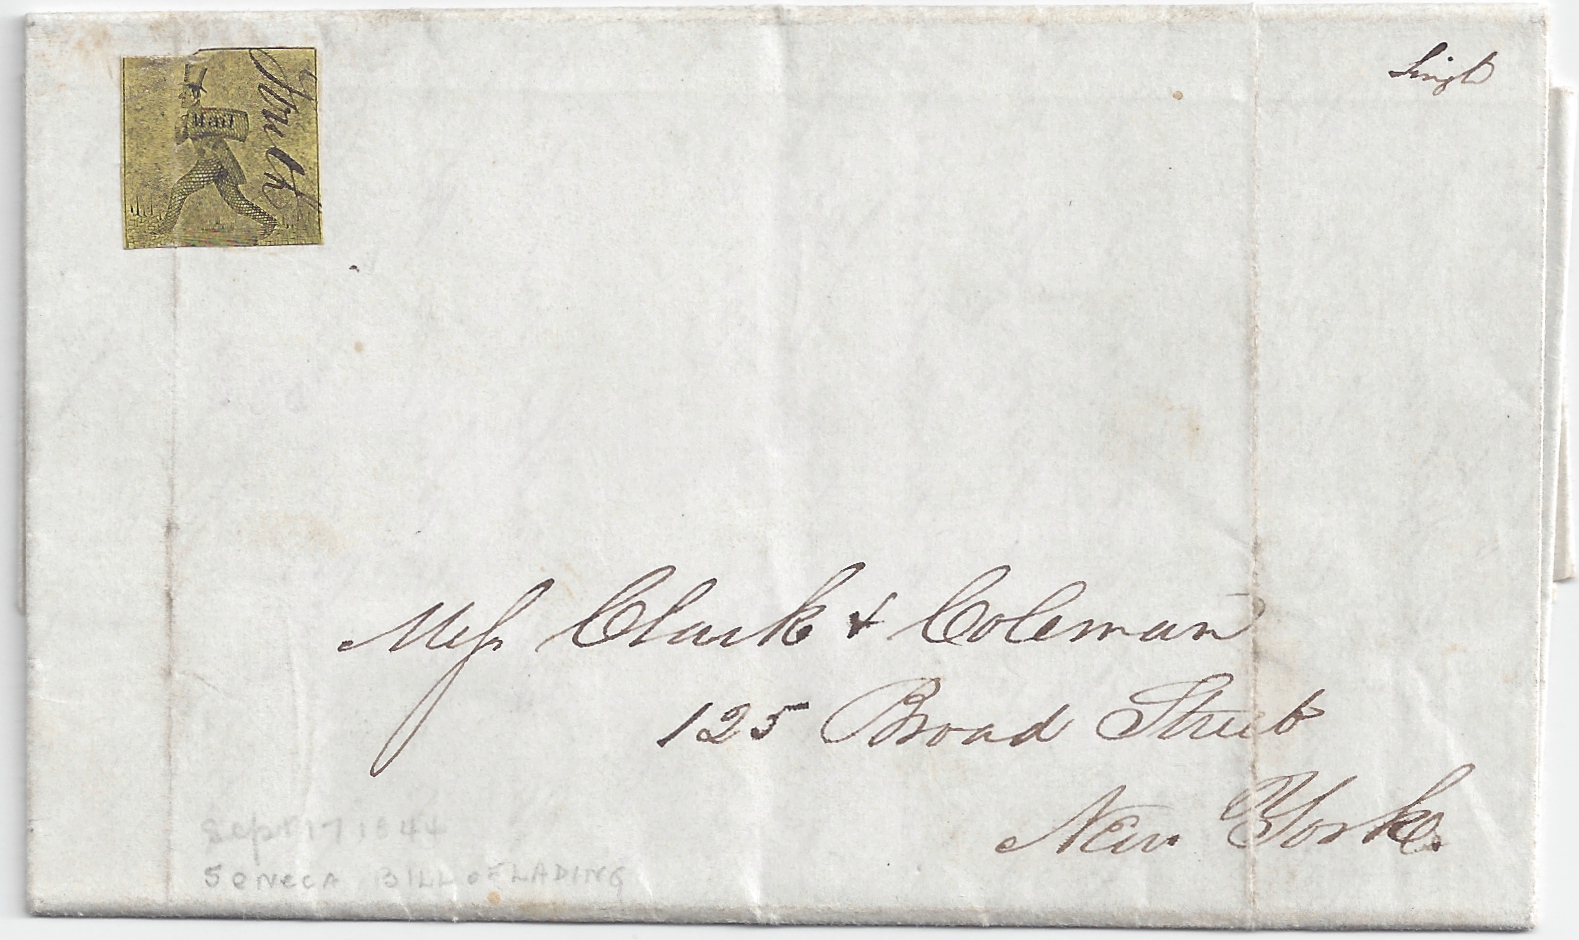 Mail
Single
Mess Clark & Coleman
125 Broad Street
New York
Sept 17 1844
SENECA BILL OF LADING